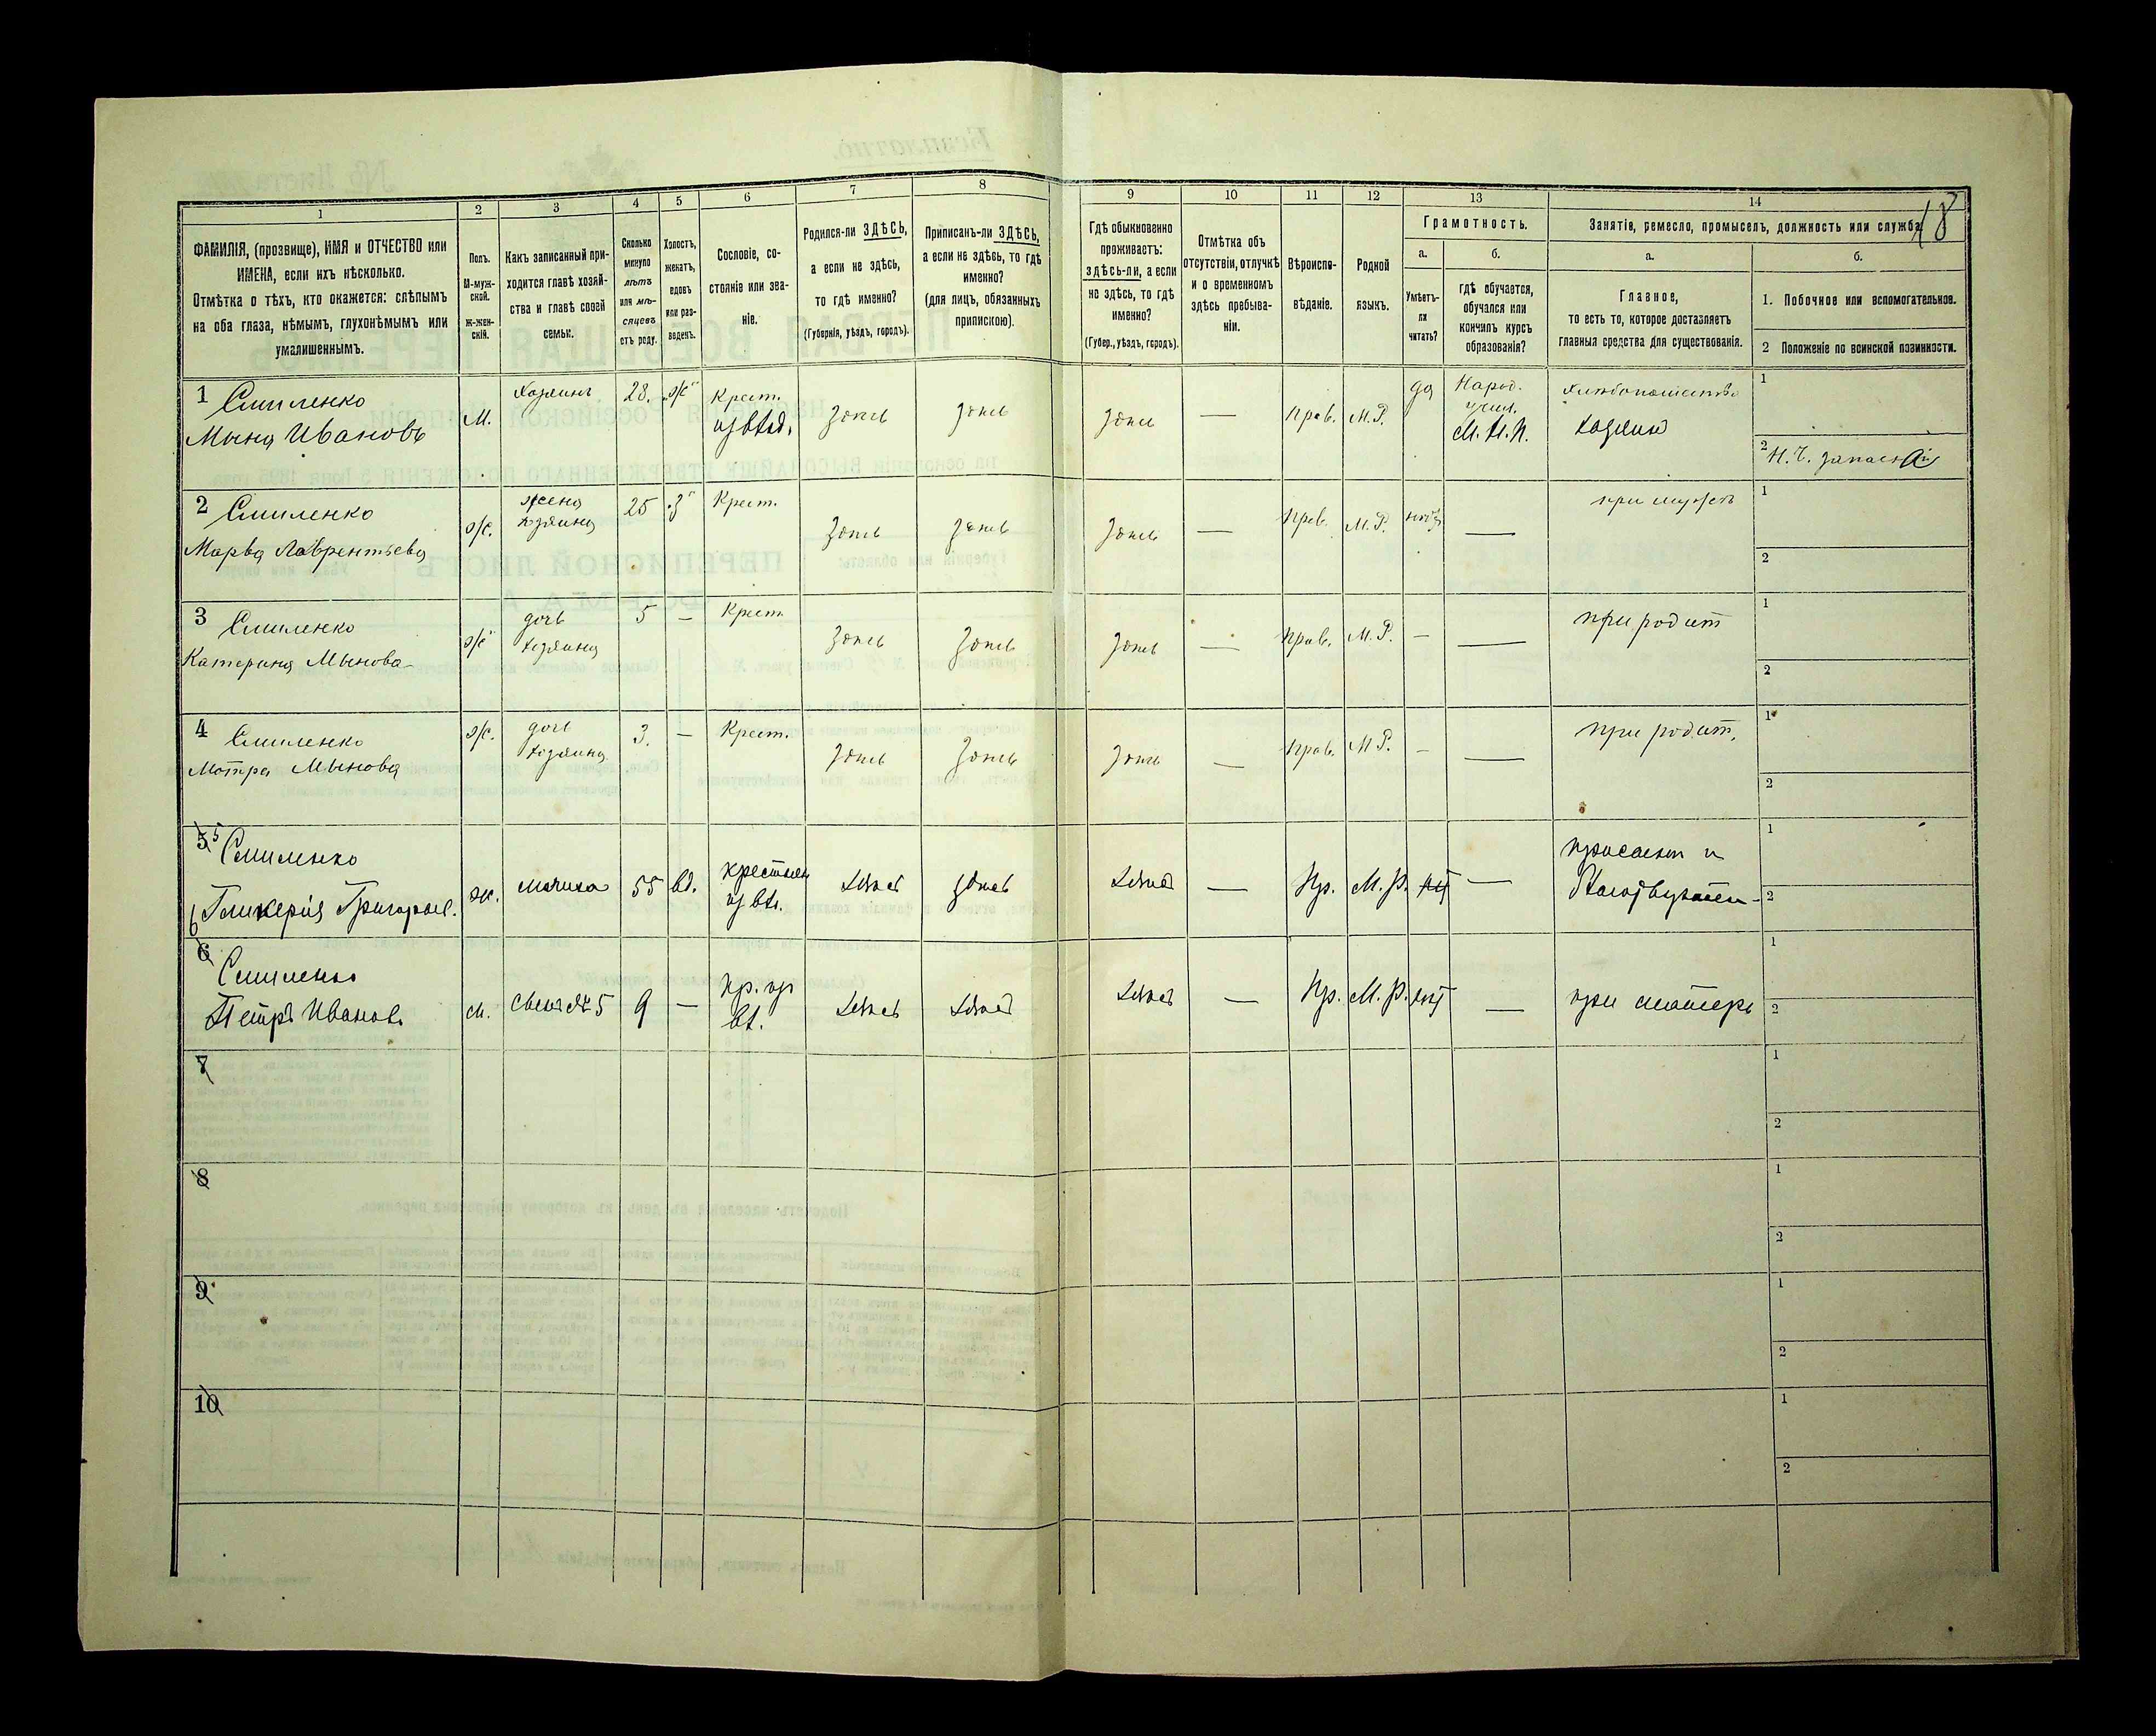 18
1
2
3
4
5
6
7
8
9
10
11
12
13
14
ФАМИЛІЯ, (прозвище), ИМЯ и ОТЧЕСТВО или
ИМЕНА, если ихъ нѣсколько.
Отмѣтка о тѣхъ, кто окажется: слѣпымъ
на оба глаза, нѣмымъ, глухонѣмымъ или
умалишеннымъ.
Полъ.
М-муж-
ской.
Ж-жен-
скій.
Какъ записанный при-
ходится главѣ хозяй-
ства и главѣ своей
семьи.
Сколько
минуло
лѣтъ
или мѣ-
сяцевъ
отъ роду.
Холостъ,
женатъ,
вдовъ
или раз-
веденъ.
Сословіе, со-
стояніе или зва-
ніе.
Родился-ли ЗДѢСЬ,
а если не здѣсь,
то гдѣ именно?
(Губернія, уѣздъ, городъ).
Приписанъ-ли ЗДѢСЬ,
а если не здѣсь, то гдѣ
именно?
(для лицъ, обязанныхъ
припискою).
Гдѣ обыкновенно
проживаетъ:
ЗДѢСЬ-ЛИ, а если
не здѣсь, то гдѣ
именно?
(Губер., уѣздъ, городъ).
Отмѣтка объ
отсутствіи, отлучкѣ
и о временномъ
здѣсь пребыва-
ніи.
Вѣроиспо-
вѣданіе.
Родной
языкъ.
Грамотность.
а.
Умѣетъ-
ли
читать?
б.
гдѣ обучается,
обучался или
кончилъ курсъ
образованія?
Занятіе, ремесло, промыселъ, должность или служба.
а.
Главное,
то есть то, которое доставляетъ
главныя средства для существованія.
б.
1. Побочное или вспомогательное.
2 Положеніе по воинской повинности.
1 Смиленко
Мына Ивановъ
М.
Хозяинъ
28.
ж
Крест.
из влад.
здѣсь
здѣсь
здѣсь
—
Прав.
М.Р.
да
Народ.
учил.
М.Н.П.
Хлѣбопашество
хозяин
1
2 Н.Ч. запаса
2 Смиленко
Марва Лаврентьева
ж.
жена
хозяина
25
з
Крест.
здѣсь
здѣсь
здѣсь
—
Прав.
М.Р.
нѣтъ
—
при мужѣ
1
2
3 Смиленко
Катерина Мынова
ж
дочь
хозяина
5
—
Крест.
здѣсь
здѣсь
здѣсь
—
Прав.
М.Р.
—
—
при родит
1
2
4 Смиленко
Мотра Мынова
ж.
дочь
хозяина
3.
—
Крест.
здѣсь
здѣсь
здѣсь
—
Прав.
М.Р.
—
—
при родит.
1
2
5 5 Смиленко
Гликерія Григорьев.
ж.
мачиха
55
вд.
крестьян
из вл.
здѣсь
здѣсь
здѣсь
—
Пр.
М.Р.
нѣт
—
1
2
6 Смиленко
Петръ Иванов.
м.
сынъ №5
9
—
Кр. из
вл.
здѣсь
здѣсь
здѣсь
—
Пр.
М.Р.
нѣт
—
при матери
1
2
7
1
2
8
1
2
9
1
2
10
1
2